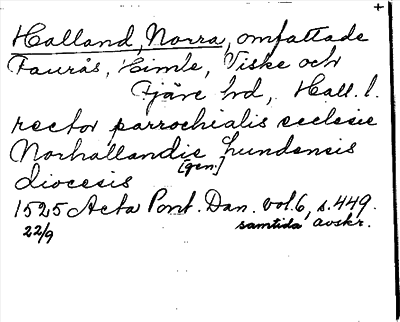 +
Halland, Norra, omfattade
Faurås, Himle, Viske och
Fjäre hd, Hall. l.
rector parrochialis ecclesie
Norhallandie lundensis
[gen.]
diocesis
1525 Acta Pont. Dan. vol.6, s.449.
22/9 samtida avskr.